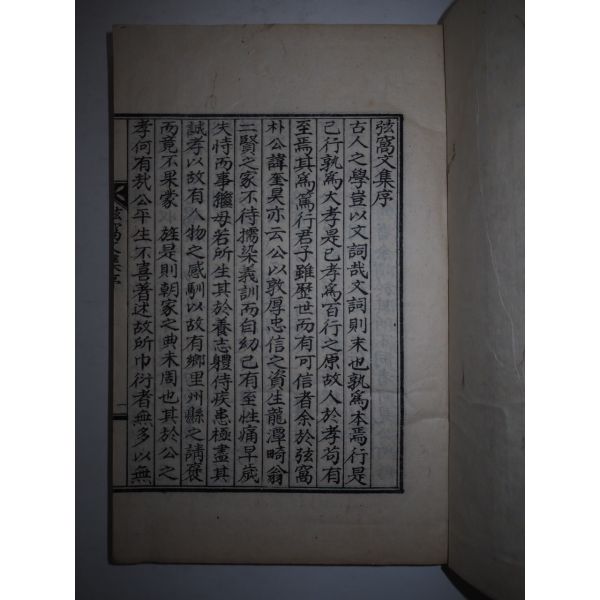 弦窩文集序
古人之學豈以文詞哉文詞則末也孰爲本焉行是
已行孰爲大孝是已孝爲百行之原故人於孝苟有
至焉其爲篤行君子雖歷世而有可信者余於弦窩
朴公諱奎昊亦云公以敦厚忠信之資生龍潭畸翁
二賢之家不待擩染義訓而自幼已有至性痛早歲
失恃而事繼母若所生其於養志軆侍疾患極盡其
誠孝以故有人物之感馴以故有鄕里州縣之請褒
而竟不果蒙 旌是則朝家之典未周也其於公之
孝何有哉公平生不喜著述故所巾衍者無多以無
弦窩文集序
一